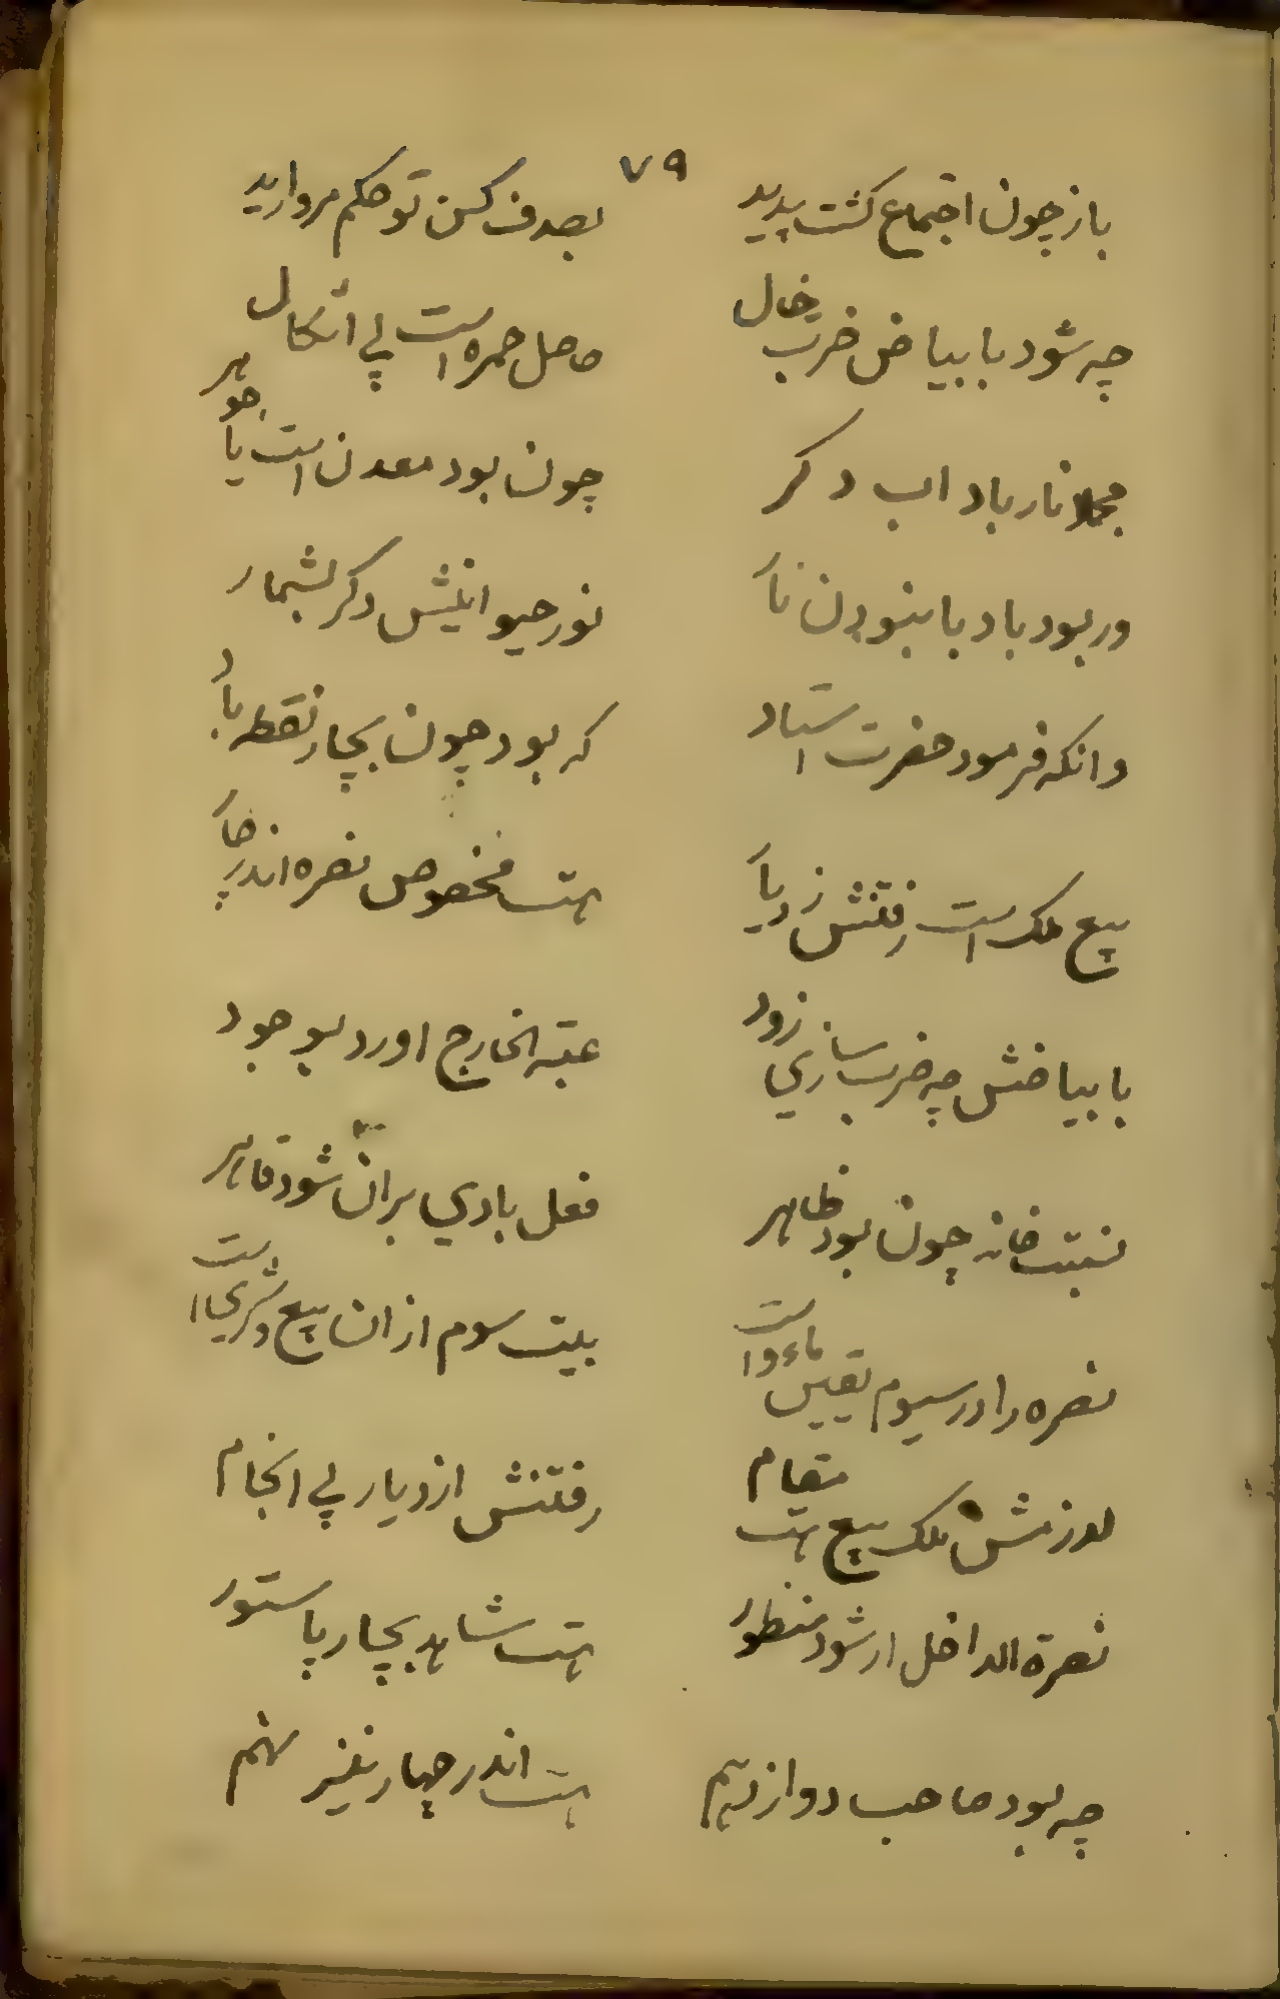 ۷۹
باز چون اجتماع کشت پدید بصدف کن تو حکم مروارید
چه شود با بیاض ضرب خال حاصل حمره است بی اشکال
مجملا نار باد اب دکر چون بود معدن است یا جوهر
ور بود باد با بنودن نار نور حیوانیش دکر بشمار
وانکه فرمود حضرت استاد که بود چون بچار نقطه باد
بیع ملک است رفتنش ز دیار هست مخصوص نصره اندر چار
با بیاضش چه ضرب سازی زود عتبه الخارج اورد بوجود
نسبت خانه چون بود ظاهر فعل بادی بران شود قاهر
نصره را در سیوم یقین ماءوا است بیت سوم از ان بیع و شری است
ملک بیع هست مقام رفتنش از دیار بی انجام
نصرة الداخل ار شود منظور هست شاهد بچار پا ستور
چه بود صاحب دوازدهم هست اندر چهار نیز نهم